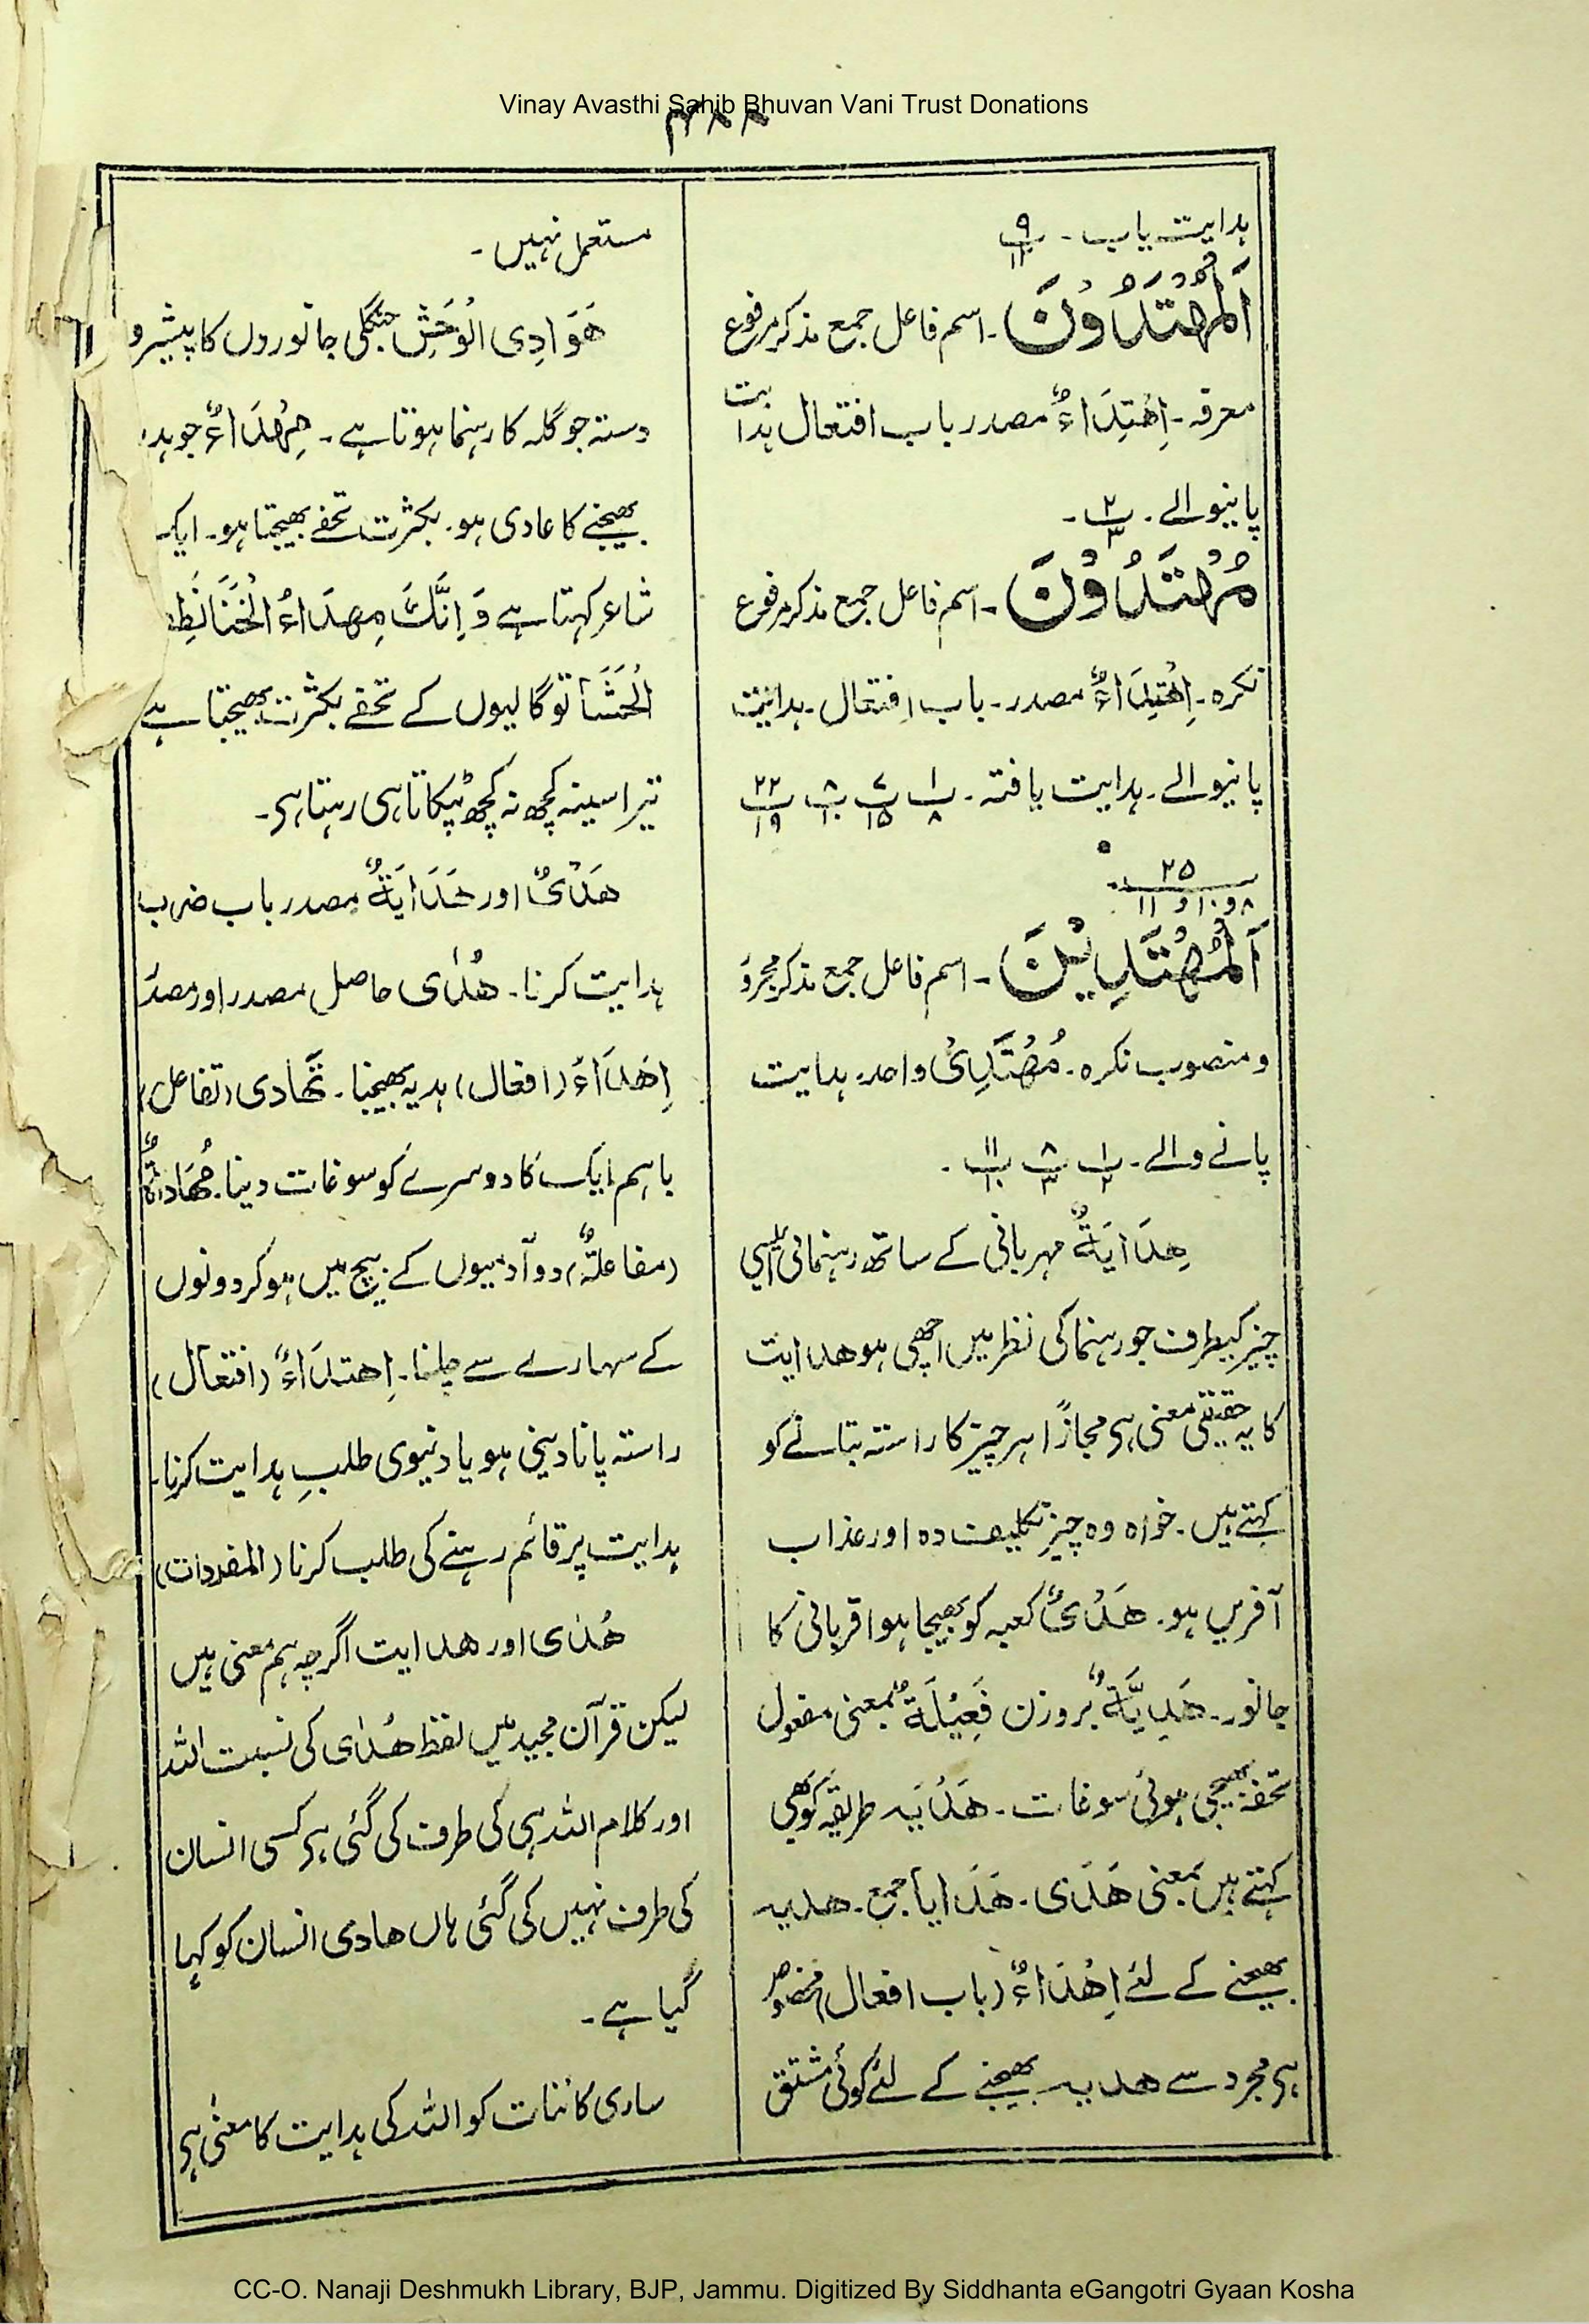 Vinay Avasthi Sahib Bhuvan Vani Trust Donations
۳۸۸
ہدایت یاب ۔ پ ۹/۱۱
اَلْمُهْتَدُوْنَ ۔ اسم فاعل جمع مذکر مرفوع
معرفہ ۔ اِهْتِدَاءٌ مصدر باب افتعال ہدایت
پانیوالے ۔ پ ۲/۳ ۔
مُهْتَدُوْنَ ۔ اسم فاعل جمع مذکر مرفوع
نکرہ ۔ اِهْتِدَاءٌ مصدر ۔ باب افتعال ۔ ہدایت
پانیوالے ۔ ہدایت یافتہ ۔ پ ۱/۸ پ ۷/۱۵ پ ۸/۱۰ پ ۲۲/۱۹
۲۵/۸ و ۱۰ و ۱۱ ۔
اَلْمُهْتَدِيْنَ ۔ اسم فاعل جمع مذکر مجرور
و منصوب نکرہ ۔ مُهْتَدِیْ واحد ۔ ہدایت
پانے والے ۔ پ ۱/۲ پ ۸/۳ پ ۱۱/۱۰ ۔
هِدَايَةٌ مہربانی کے ساتھ رہنمائی ایسی
چیز کیطرف جو رہنما کی نظر میں اچھی ہو هدایت
کا یہ حقیقی معنی ہی مجازًا ہر چیز کا راستہ بتانے کو
کہتے ہیں ۔ خواہ وہ چیز تکلیف دہ اور عذاب
آفریں ہو ۔ هَدْیٌ کعبہ کو بھیجا ہوا قربانی کا
جانور ۔ هَدِيَّةٌ بروزن فَعِيْلَةٌ بمعنی مفعول
تحفۃ بھیجی ہوئی سوغات ۔ هَدْیَہ طریقہ کو بھی
کہتے ہیں بمعنی هَدْی ۔ هَدَایا جمع ۔ هدیہ
بھیجنے کے لئے اِهْدَاءٌ (باب افعال) مخصوص
ہی مجرد سے هدیہ بھیجنے کے لئے کوئی مشتق
مستعمل نہیں ۔
هَوَادِی الْوَحْشِ جنگلی جانوروں کا پیشرو
دستہ جو گلہ کا رہنما ہوتا ہے ۔ مِهْدَاءٌ جو ہدیہ
بھیجنے کا عادی ہو ۔ بکثرت تحفے بھیجتا ہو ۔ ایک
شاعر کہتا ہے وَ اِنَّكَ مِهْدَاءُ الْخَنَا نَطِفُ
الْحَشَا تو گالیوں کے تحفے بکثرت بھیجتا ہے
تیرا سینہ کچھ نہ کچھ ٹپکاتا ہی رہتا ہی ۔
هَدْیٌ اور هَدَايَةٌ مصدر باب ضرب
ہدایت کرنا ۔ هُدٰی حاصل مصدر اور مصدر
اِهْدَاءٌ (افعال) ہدیہ بھیجنا ۔ تَهَادی (تفاعل)
باہم ایک کا دوسرے کو سوغات دینا ۔ مُهَادَاةٌ
(مفاعلۃٌ) دو آدمیوں کے بیچ میں ہو کر دونوں
کے سہارے سے چلنا ۔ اِهتدَاءٌ (افتعال)
راستہ پانا دینی ہو یا دنیوی طلبِ ہدایت کرنا ۔
ہدایت پر قائم رہنے کی طلب کرنا (المفردات)
هُدٰی اور هدایت اگرچہ ہم معنی ہیں
لیکن قرآن مجید میں لفظ هُدٰی کی نسبت اللہ
اور کلام اللہ ہی کی طرف کی گئی ہی کسی انسان
کی طرف نہیں کی گئی ہاں هادی انسان کو کہا
گیا ہے ۔
ساری کائنات کو اللہ کی ہدایت کا معنٰی ہی
CC-O. Nanaji Deshmukh Library, BJP, Jammu. Digitized By Siddhanta eGangotri Gyaan Kosha